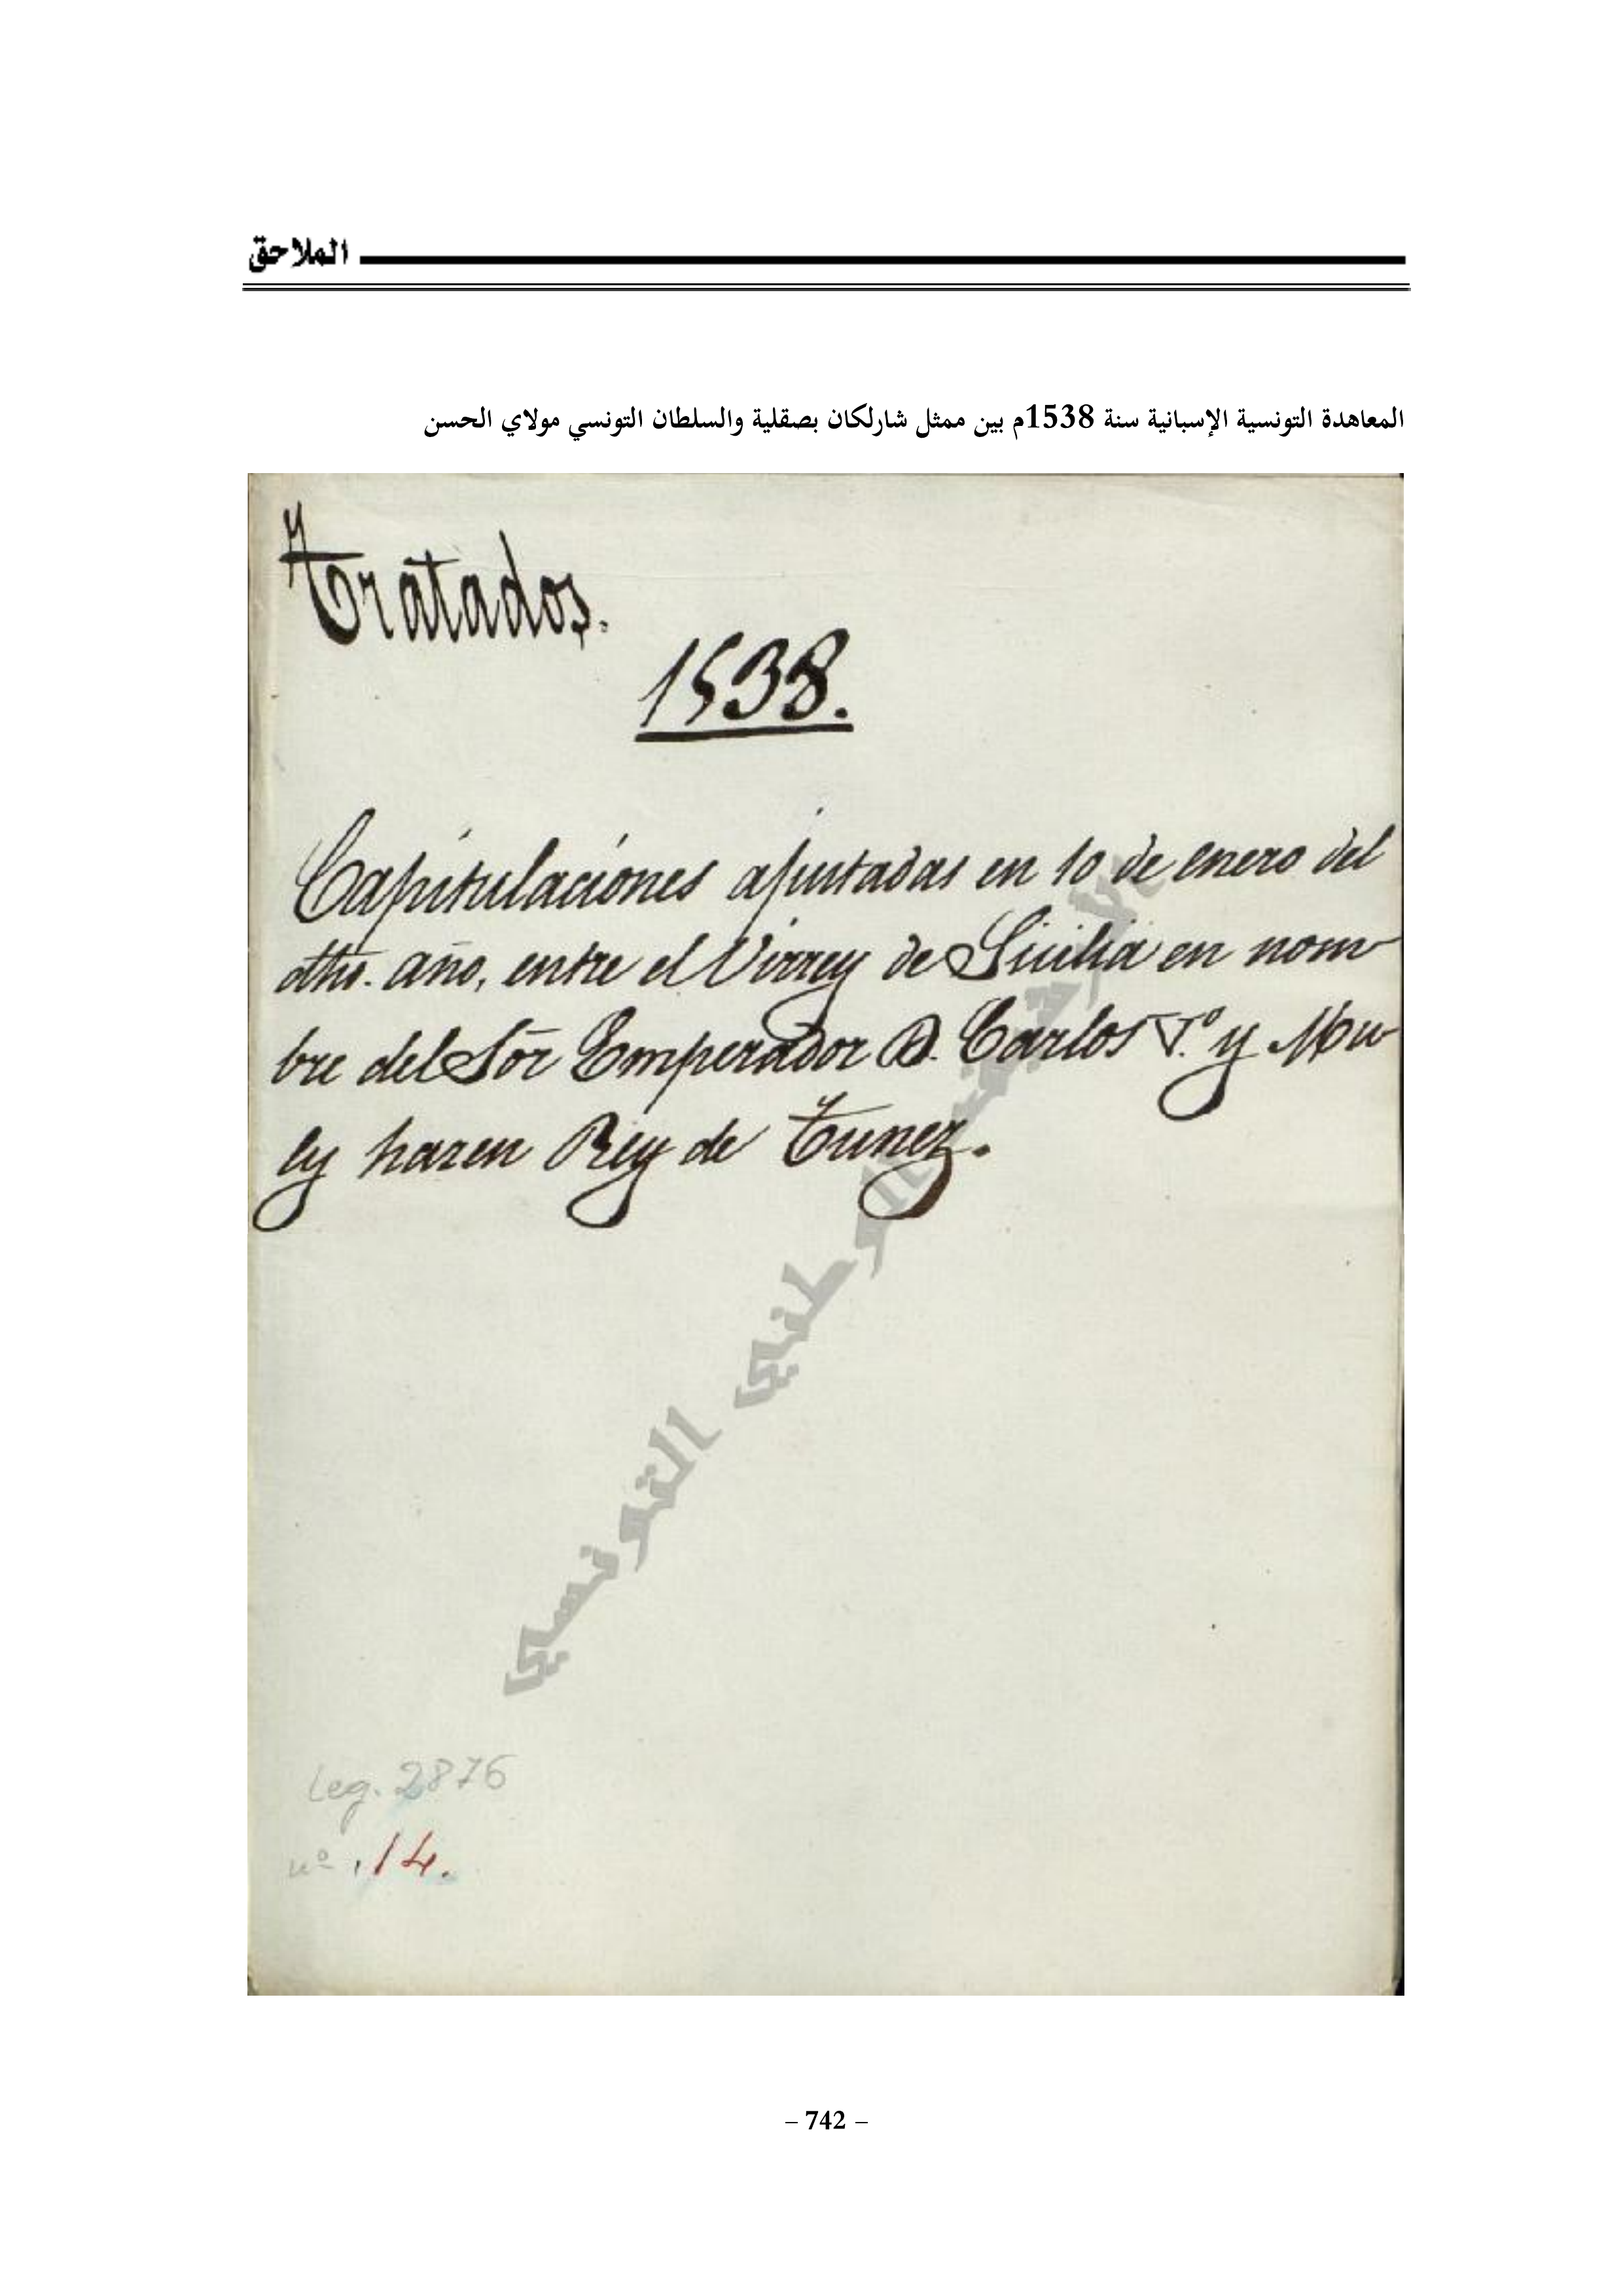 الملاحق
المعاهدة التونسية الإسبانية سنة 1538م بين ممثل شارلكان بصقلية والسلطان التونسي مولاي الحسن
Tratados.
1538.
Capitulaciones ajustadas en 10 de enero del
dho. año, entre el Virrey de Sicilia en nom-
bre del Sōr Emperador D. Carlos V.º y Mu-
ley hazen Rey de Tunez.
الأرشيف الوطني التونسي
Leg. 2876
nº 14.
– 742 –